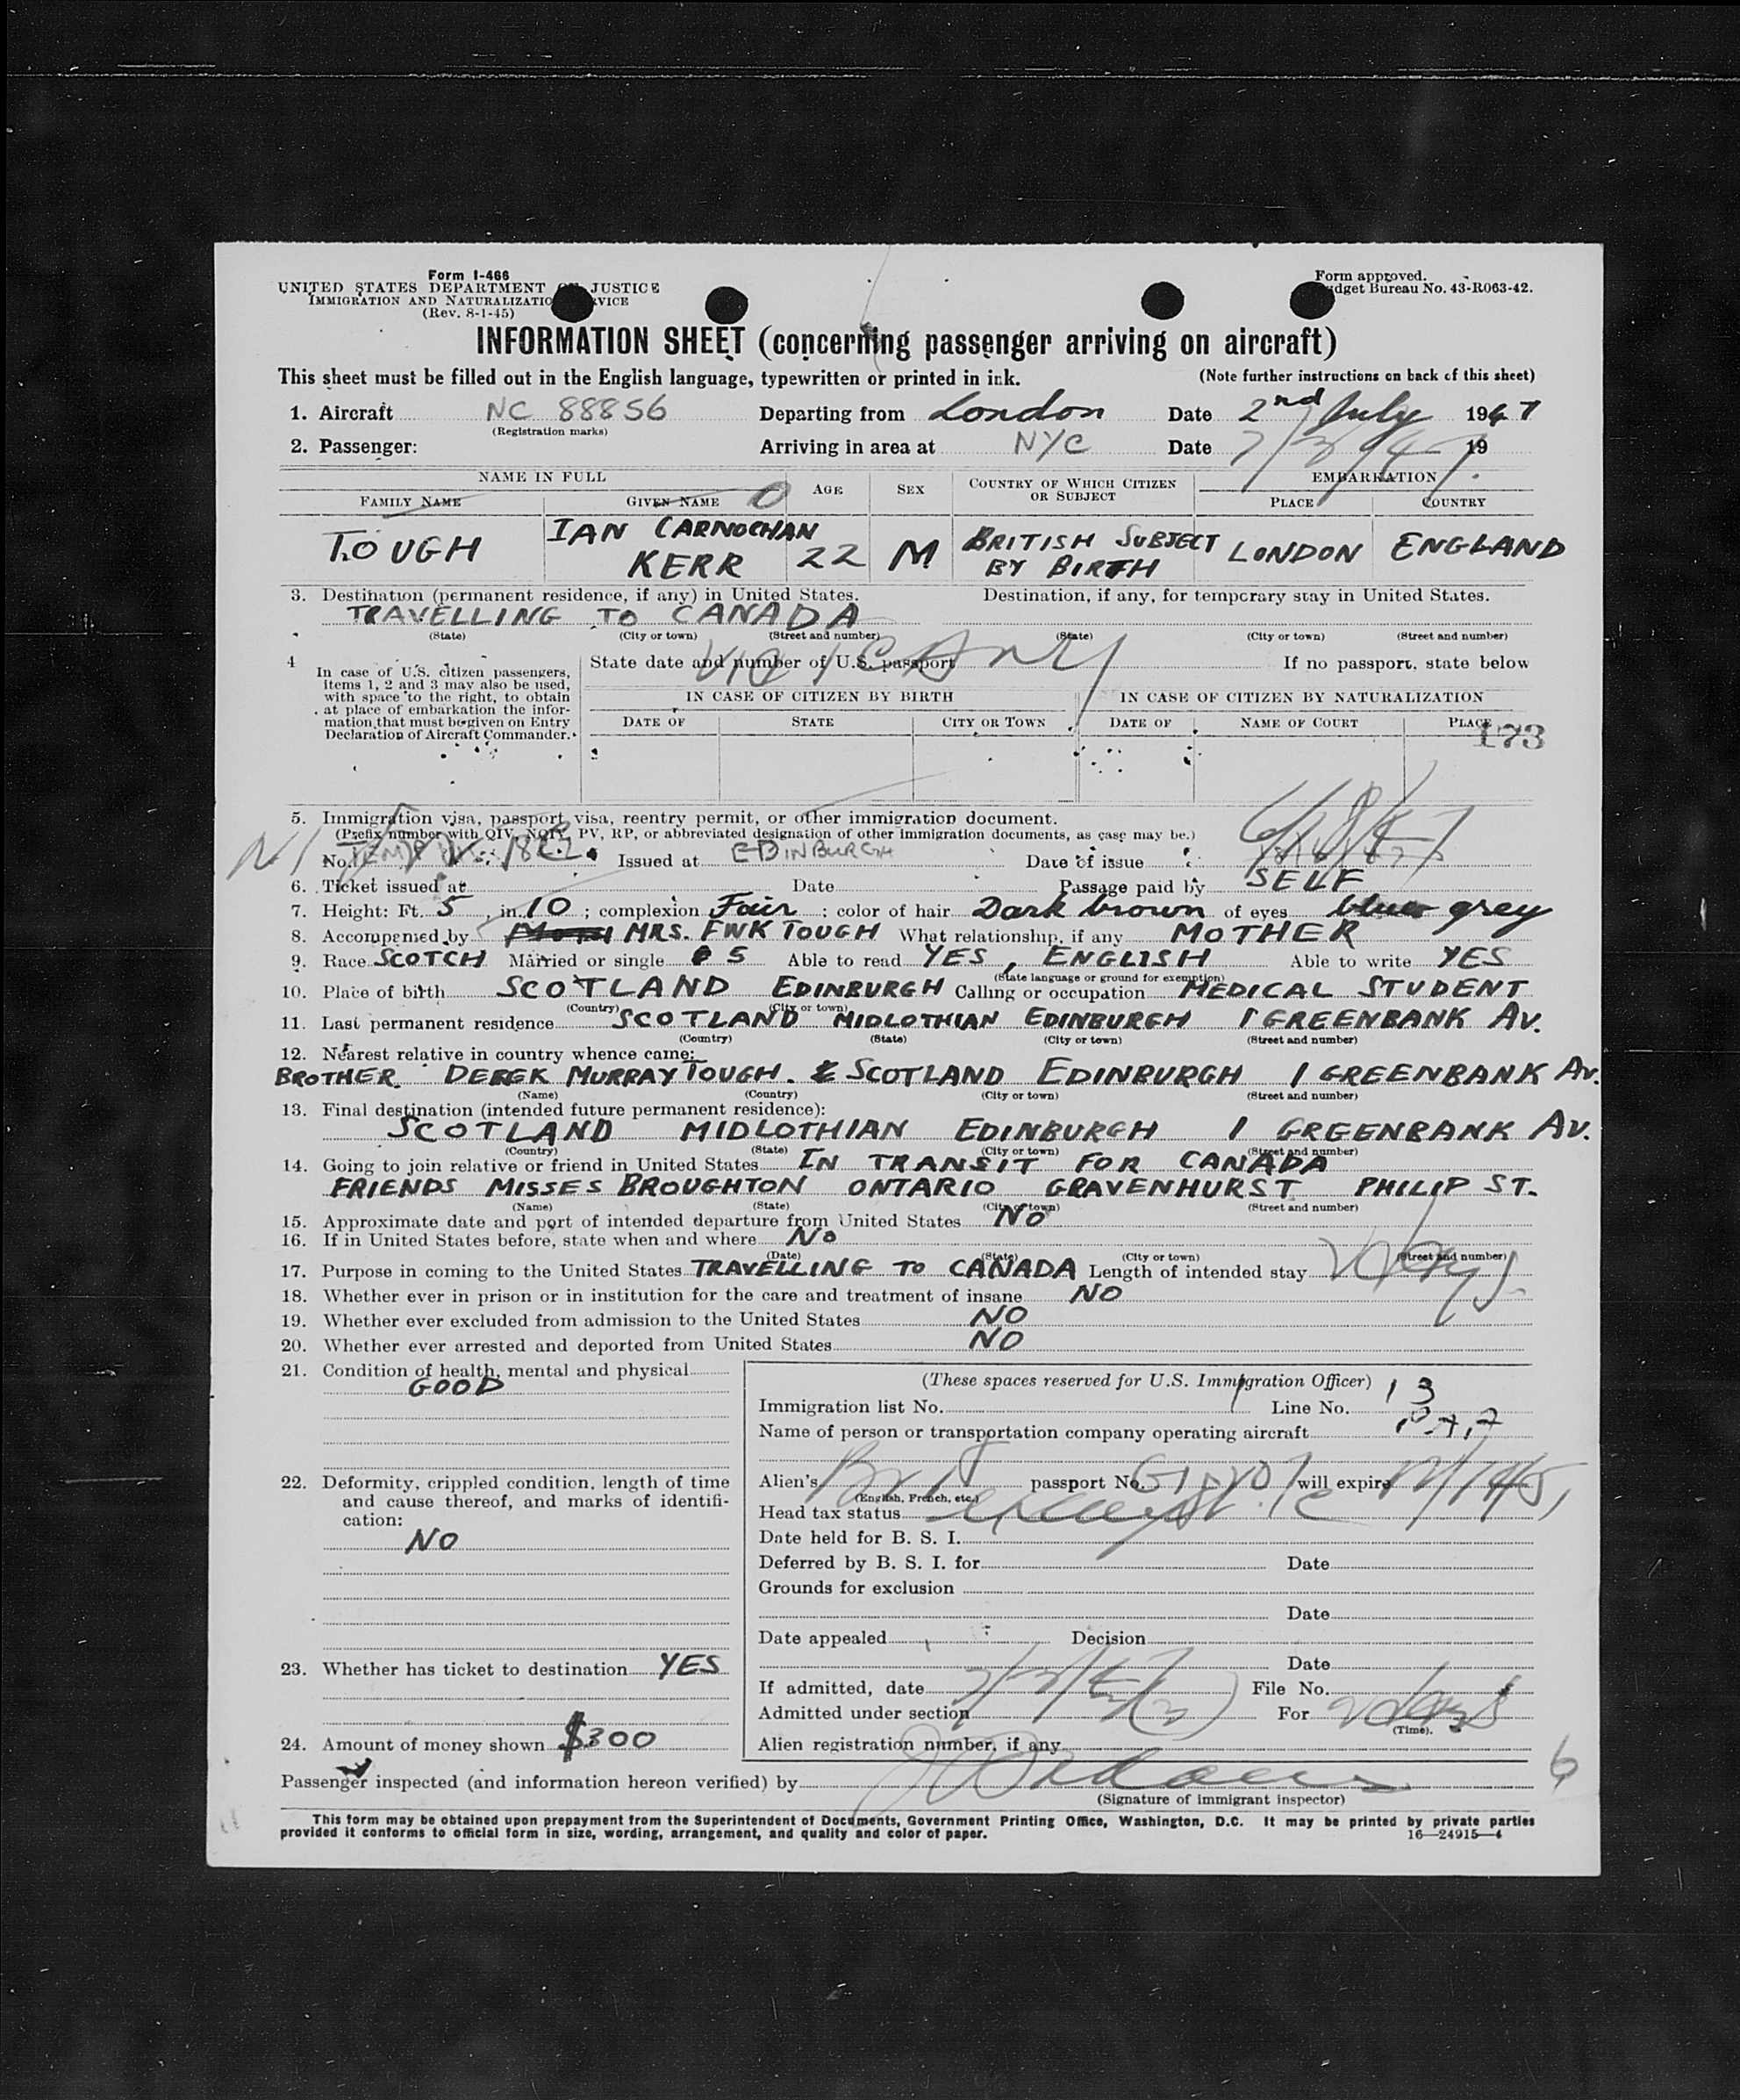 Form I-466
UNITED STATES DEPARTMENT JUSTICE
IMMIGRATION AND NATURALIZATION SERVICE
(Rev. 8-1-45)
Form approved.
Budget Bureau No. 43-R063-42.
INFORMATION SHEET (concerning passenger arriving on aircraft)
This sheet must be filled out in the English language, typewritten or printed in ink. (Note further instructions on back of this sheet)
1. Aircraft NC 88856 Departing from London Date 2nd July 1947
(Registration marks)
2. Passenger: Arriving in area at NYC Date 7/3/47 19
NAME IN FULL AGE SEX COUNTRY OF WHICH CITIZEN OR SUBJECT EMBARKATION
FAMILY NAME GIVEN NAME PLACE COUNTRY
TOUGH IAN CARNOCHAN KERR 22 M BRITISH SUBJECT BY BIRTH LONDON ENGLAND
3. Destination (permanent residence, if any) in United States. Destination, if any, for temporary stay in United States.
TRAVELLING TO CANADA
(State) (City or town) (Street and number) (State) (City or town) (Street and number)
4 In case of U.S. citizen passengers, items 1, 2 and 3 may also be used, with space to the right, to obtain at place of embarkation the information that must be given on Entry Declaration of Aircraft Commander.
State date and number of U.S. passport If no passport, state below
IN CASE OF CITIZEN BY BIRTH IN CASE OF CITIZEN BY NATURALIZATION
DATE OF STATE CITY OR TOWN DATE OF NAME OF COURT PLACE
173
5. Immigration visa, passport visa, reentry permit, or other immigration document.
(Prefix number with QIV, NQIV, PV, RP, or abbreviated designation of other immigration documents, as case may be.)
No. Issued at EDINBURGH Date of issue
6. Ticket issued at Date Passage paid by SELF
7. Height: Ft. 5, in. 10; complexion Fair; color of hair Dark brown of eyes blue grey
8. Accompanied by MRS. FWK TOUGH What relationship, if any MOTHER
9. Race SCOTCH Married or single S Able to read YES, ENGLISH Able to write YES
(State language or ground for exemption)
10. Place of birth SCOTLAND EDINBURGH Calling or occupation MEDICAL STUDENT
(Country) (City or town)
11. Last permanent residence SCOTLAND MIDLOTHIAN EDINBURGH 1 GREENBANK AV.
(Country) (State) (City or town) (Street and number)
12. Nearest relative in country whence came:
BROTHER. DEREK MURRAY TOUGH. SCOTLAND EDINBURGH 1 GREENBANK AV.
(Name) (Country) (City or town) (Street and number)
13. Final destination (intended future permanent residence):
SCOTLAND MIDLOTHIAN EDINBURGH 1 GREENBANK AV.
(Country) (State) (City or town) (Street and number)
14. Going to join relative or friend in United States IN TRANSIT FOR CANADA
FRIENDS MISSES BROUGHTON ONTARIO GRAVENHURST PHILIP ST.
(Name) (State) (City or town) (Street and number)
15. Approximate date and port of intended departure from United States NO
16. If in United States before, state when and where No
(Date) (State) (City or town) (Street and number)
17. Purpose in coming to the United States TRAVELLING TO CANADA Length of intended stay
18. Whether ever in prison or in institution for the care and treatment of insane NO
19. Whether ever excluded from admission to the United States NO
20. Whether ever arrested and deported from United States NO
21. Condition of health, mental and physical
GOOD
(These spaces reserved for U.S. Immigration Officer)
Immigration list No. Line No. 13
Name of person or transportation company operating aircraft
22. Deformity, crippled condition, length of time and cause thereof, and marks of identification:
NO
Alien's passport No. will expire
(English, French, etc.)
Head tax status
Date held for B. S. I.
Deferred by B. S. I. for Date
Grounds for exclusion
Date
Date appealed Decision
Date
23. Whether has ticket to destination YES
If admitted, date File No.
Admitted under section For
(Time).
24. Amount of money shown $300
Alien registration number, if any
Passenger inspected (and information hereon verified) by
6
(Signature of immigrant inspector)
This form may be obtained upon prepayment from the Superintendent of Documents, Government Printing Office, Washington, D.C. It may be printed by private parties
provided it conforms to official form in size, wording, arrangement, and quality and color of paper. 16—24915—4